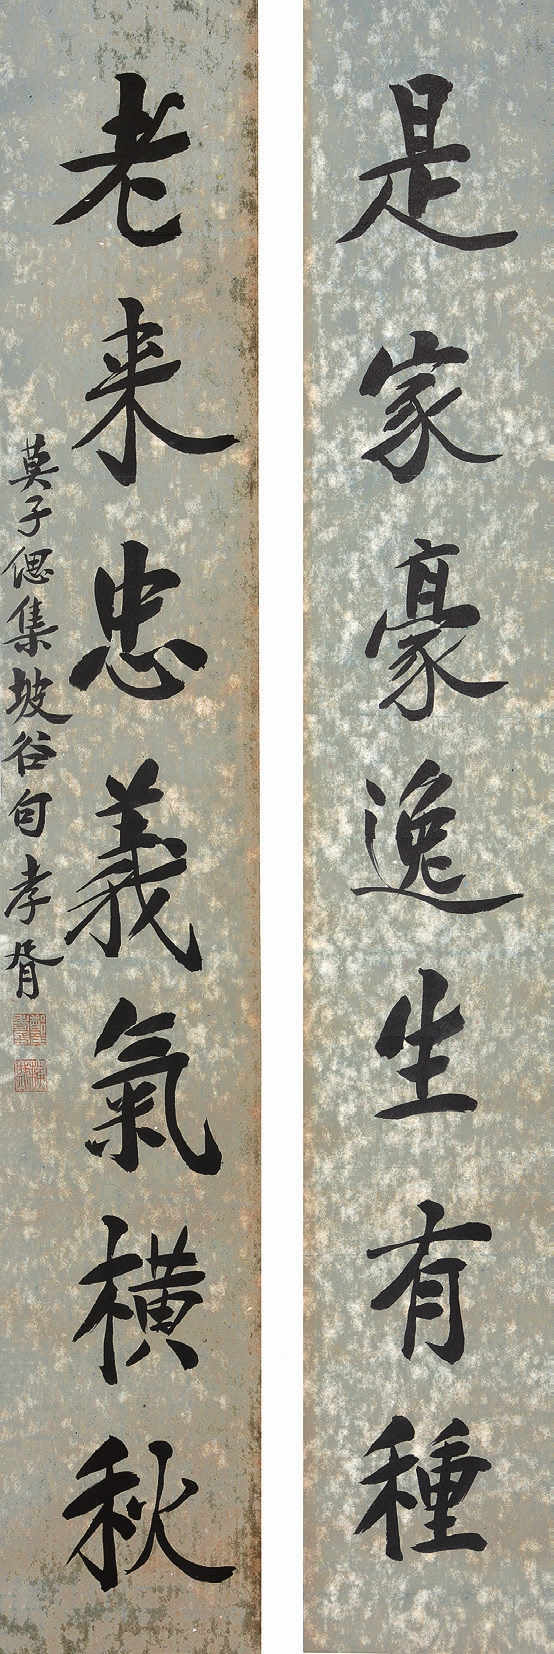 是家豪逸生有種
老来忠義氣橫秋
莫子偲集坡谷句孝胥